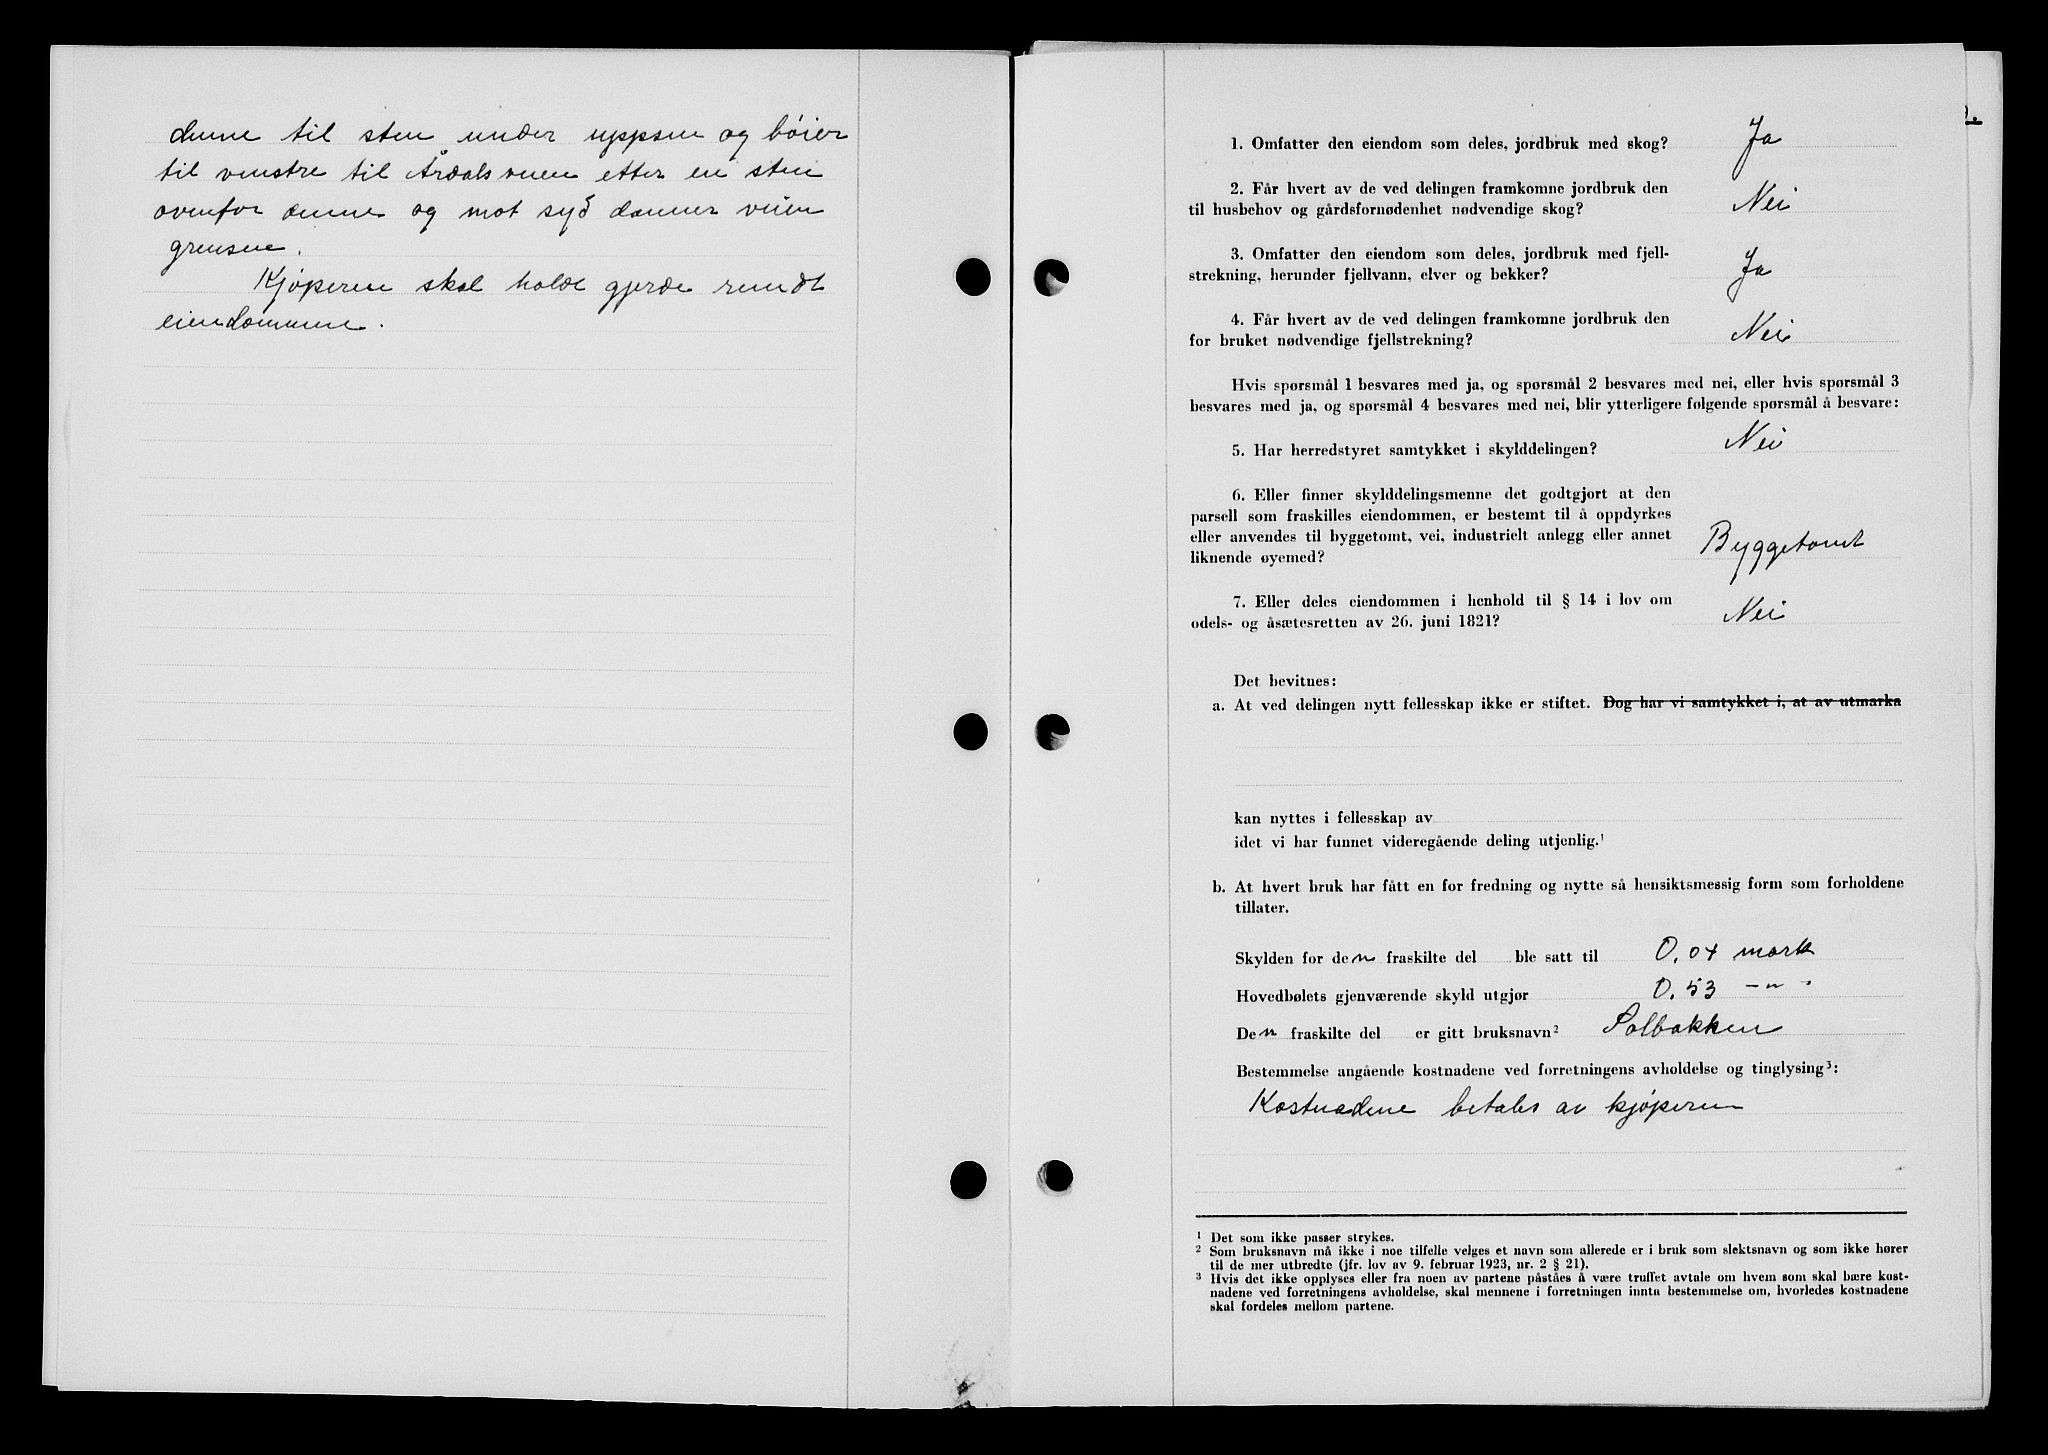 denne til sten under uppsen og bøier
til venstre til Årdalsveien etter en sten
ovenfor denne og mot syd danner veien
grensen.
Kjøperen skal holde gjerde rundt
eiendommen.
1. Omfatter den eiendom som deles, jordbruk med skog? Ja
2. Får hvert av de ved delingen framkomne jordbruk den
til husbehov og gårdsfornødenhet nødvendige skog? Nei
3. Omfatter den eiendom som deles, jordbruk med fjell-
strekning, herunder fjellvann, elver og bekker? Ja
4. Får hvert av de ved delingen framkomne jordbruk den
for bruket nødvendige fjellstrekning? Nei
Hvis spørsmål 1 besvares med ja, og spørsmål 2 besvares med nei, eller hvis spørsmål 3
besvares med ja, og spørsmål 4 besvares med nei, blir ytterligere følgende spørsmål å besvare:
5. Har herredstyret samtykket i skylddelingen? Nei
6. Eller finner skylddelingsmenne det godtgjort at den
parsell som fraskilles eiendommen, er bestemt til å oppdyrkes
eller anvendes til byggetomt, vei, industrielt anlegg eller annet
liknende øyemed? Byggetomt
7. Eller deles eiendommen i henhold til § 14 i lov om
odels- og åsætesretten av 26. juni 1821? Nei
Det bevitnes:
a. At ved delingen nytt fellesskap ikke er stiftet. Dog har vi samtykket i, at av utmarka
kan nyttes i fellesskap av
idet vi har funnet videregående deling utjenlig.¹
b. At hvert bruk har fått en for fredning og nytte så hensiktsmessig form som forholdene
tillater.
Skylden for den fraskilte del ble satt til 0,04 mark
Hovedbølets gjenværende skyld utgjør 0.53 -"-
Den fraskilte del er gitt bruksnavn² Solbakken
Bestemmelse angående kostnadene ved forretningens avholdelse og tinglysing³:
Kostnadene betales av kjøperen
¹ Det som ikke passer strykes.
² Som bruksnavn må ikke i noe tilfelle velges et navn som allerede er i bruk som slektsnavn og som ikke hører
til de mer utbredte (jfr. lov av 9. februar 1923, nr. 2 § 21).
³ Hvis det ikke opplyses eller fra noen av partene påståes å være truffet avtale om hvem som skal bære kost-
nadene ved forretningens avholdelse, skal mennene i forretningen innta bestemmelse om, hvorledes kostnadene
skal fordeles mellom partene.